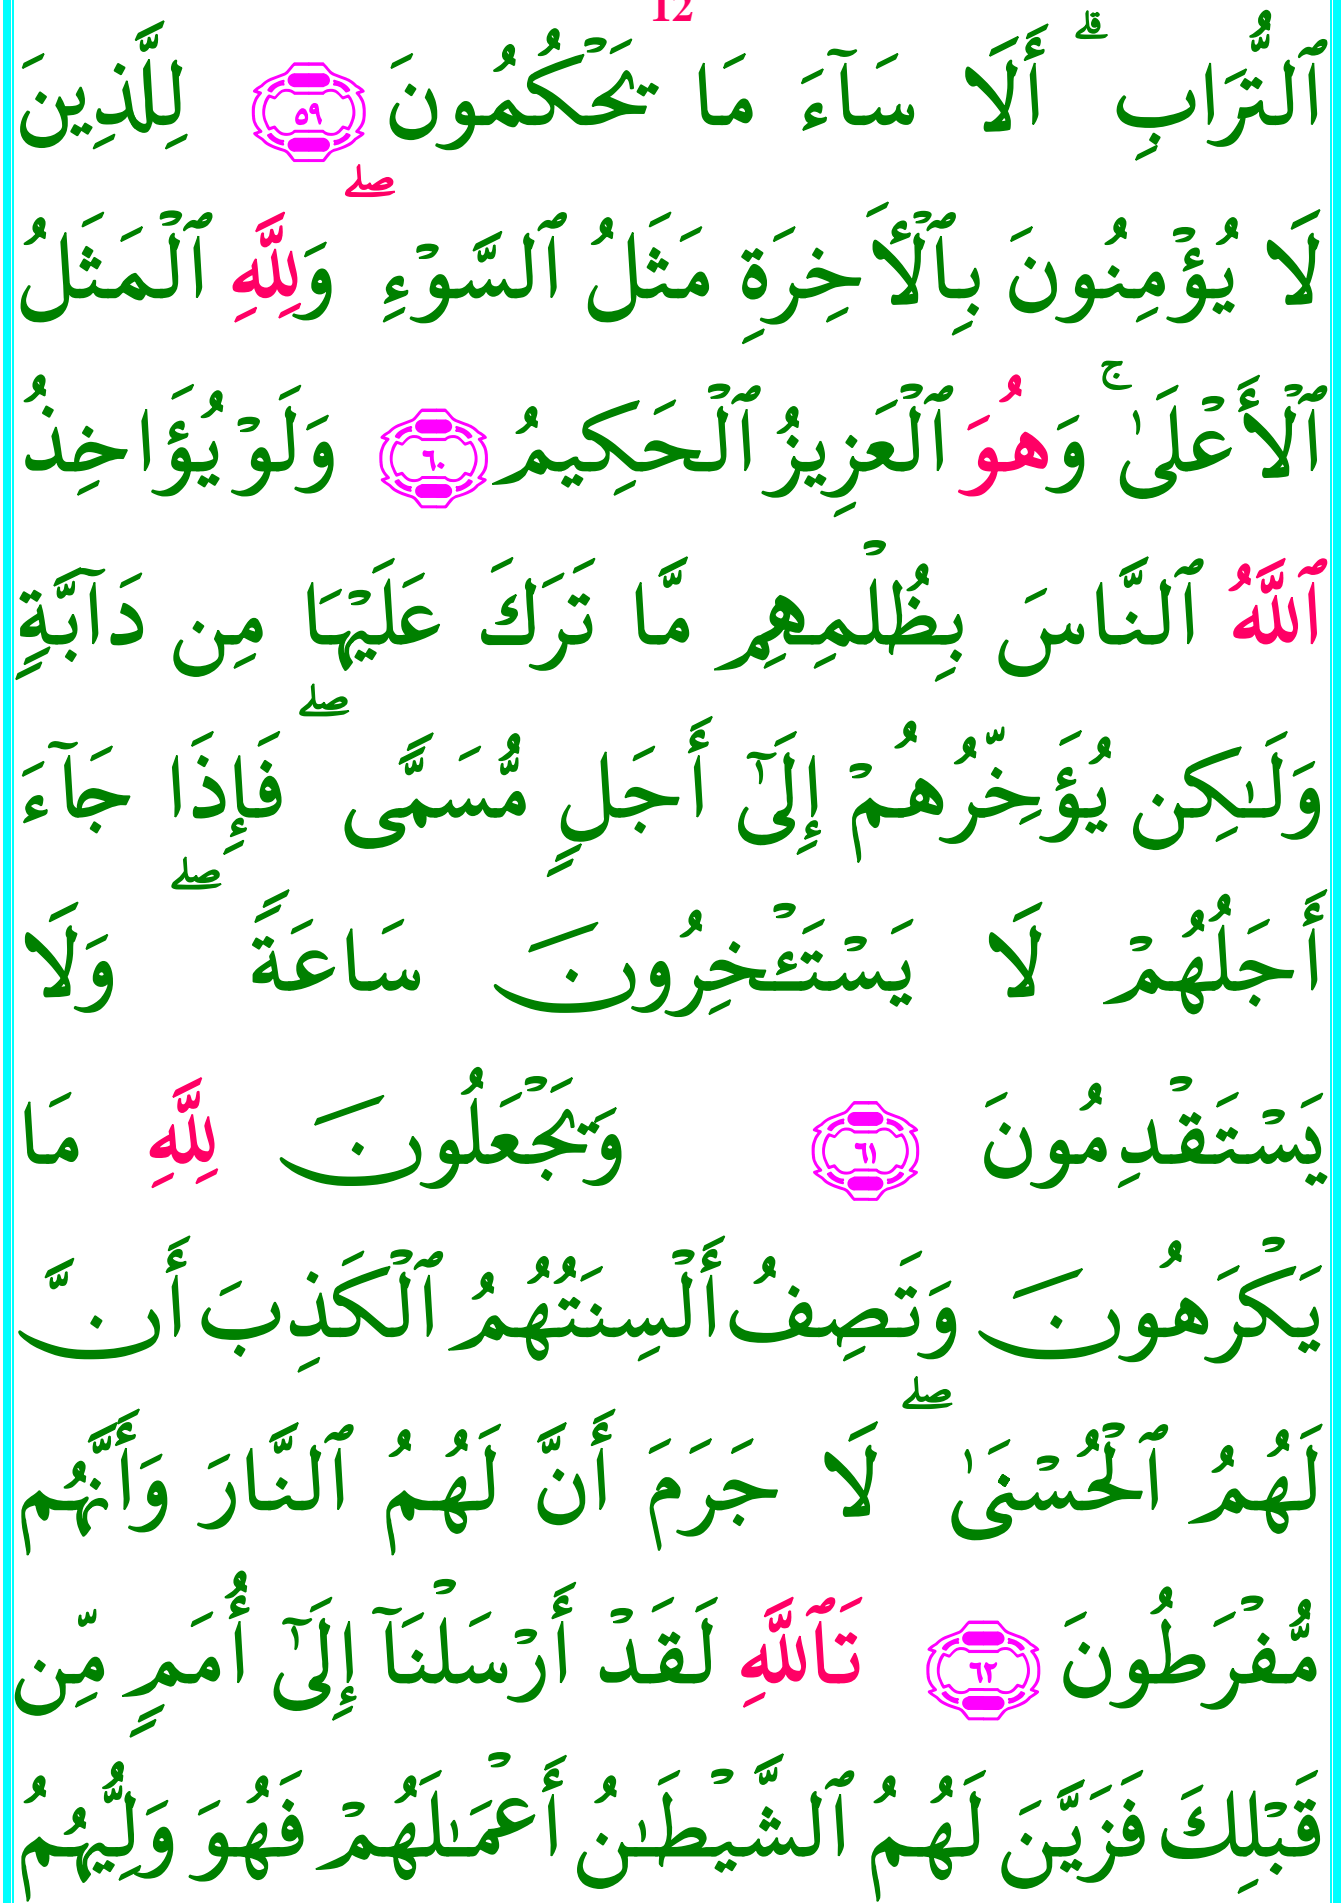 12
ٱلتُّرَابِ ۗ أَلَا سَآءَ مَا يَحْكُمُونَ ٥٩ لِلَّذِينَ
لَا يُؤْمِنُونَ بِٱلْأَخِرَةِ مَثَلُ ٱلسَّوْءِ ۖ وَلِلَّهِ ٱلْمَثَلُ
ٱلْأَعْلَىٰ ۚ وَهُوَ ٱلْعَزِيزُ ٱلْحَكِيمُ ٦٠ وَلَوْ يُؤَاخِذُ
ٱللَّهُ ٱلنَّاسَ بِظُلْمِهِم مَّا تَرَكَ عَلَيْهَا مِن دَآبَّةٍ
وَلَـٰكِن يُؤَخِّرُهُمْ إِلَىٰٓ أَجَلٍ مُّسَمًّى ۖ فَإِذَا جَآءَ
أَجَلُهُمْ لَا يَسْتَـْٔخِرُونَ سَاعَةً ۖ وَلَا
يَسْتَقْدِمُونَ ٦١ وَيَجْعَلُونَ لِلَّهِ مَا
يَكْرَهُونَ وَتَصِفُ أَلْسِنَتُهُمُ ٱلْكَذِبَ أَنَّ
لَهُمُ ٱلْحُسْنَىٰ ۖ لَا جَرَمَ أَنَّ لَهُمُ ٱلنَّارَ وَأَنَّهُم
مُّفْرَطُونَ ٦٢ تَٱللَّهِ لَقَدْ أَرْسَلْنَآ إِلَىٰٓ أُمَمٍ مِّن
قَبْلِكَ فَزَيَّنَ لَهُمُ ٱلشَّيْطَـٰنُ أَعْمَـٰلَهُمْ فَهُوَ وَلِيُّهُمُ